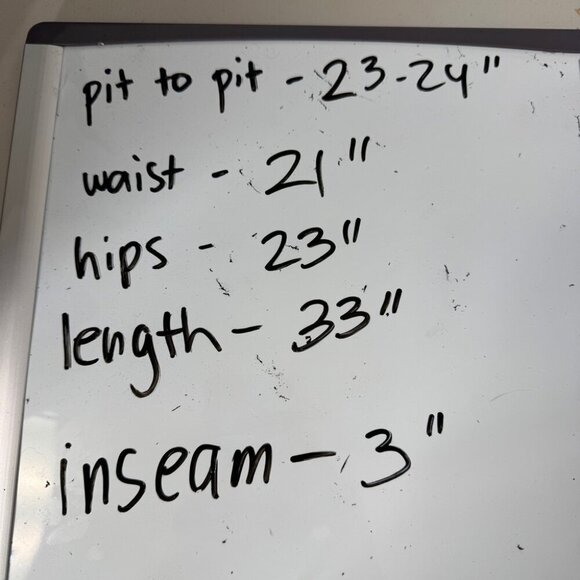 pit to pit - 23-24"
waist - 21"
hips - 23"
length - 33"
inseam - 3"